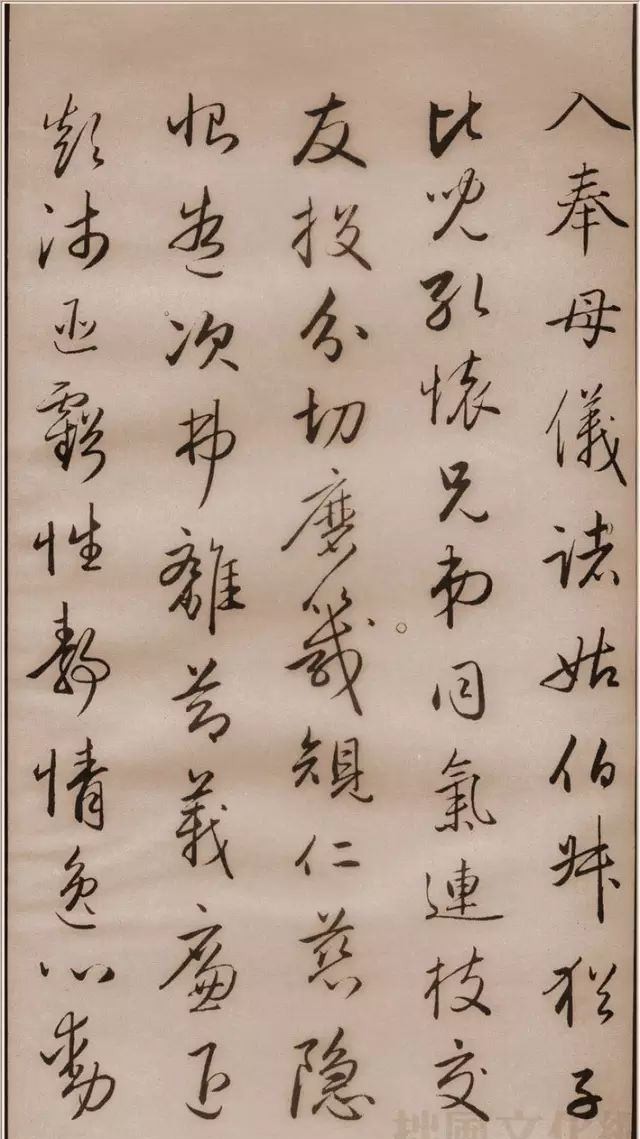 入奉母儀諸姑伯叔猶子
比兒孔懷兄弟同氣連枝交
友投分切磨箴規仁慈隱
惻造次弗離節義廉退
顛沛匪虧性靜情逸心動